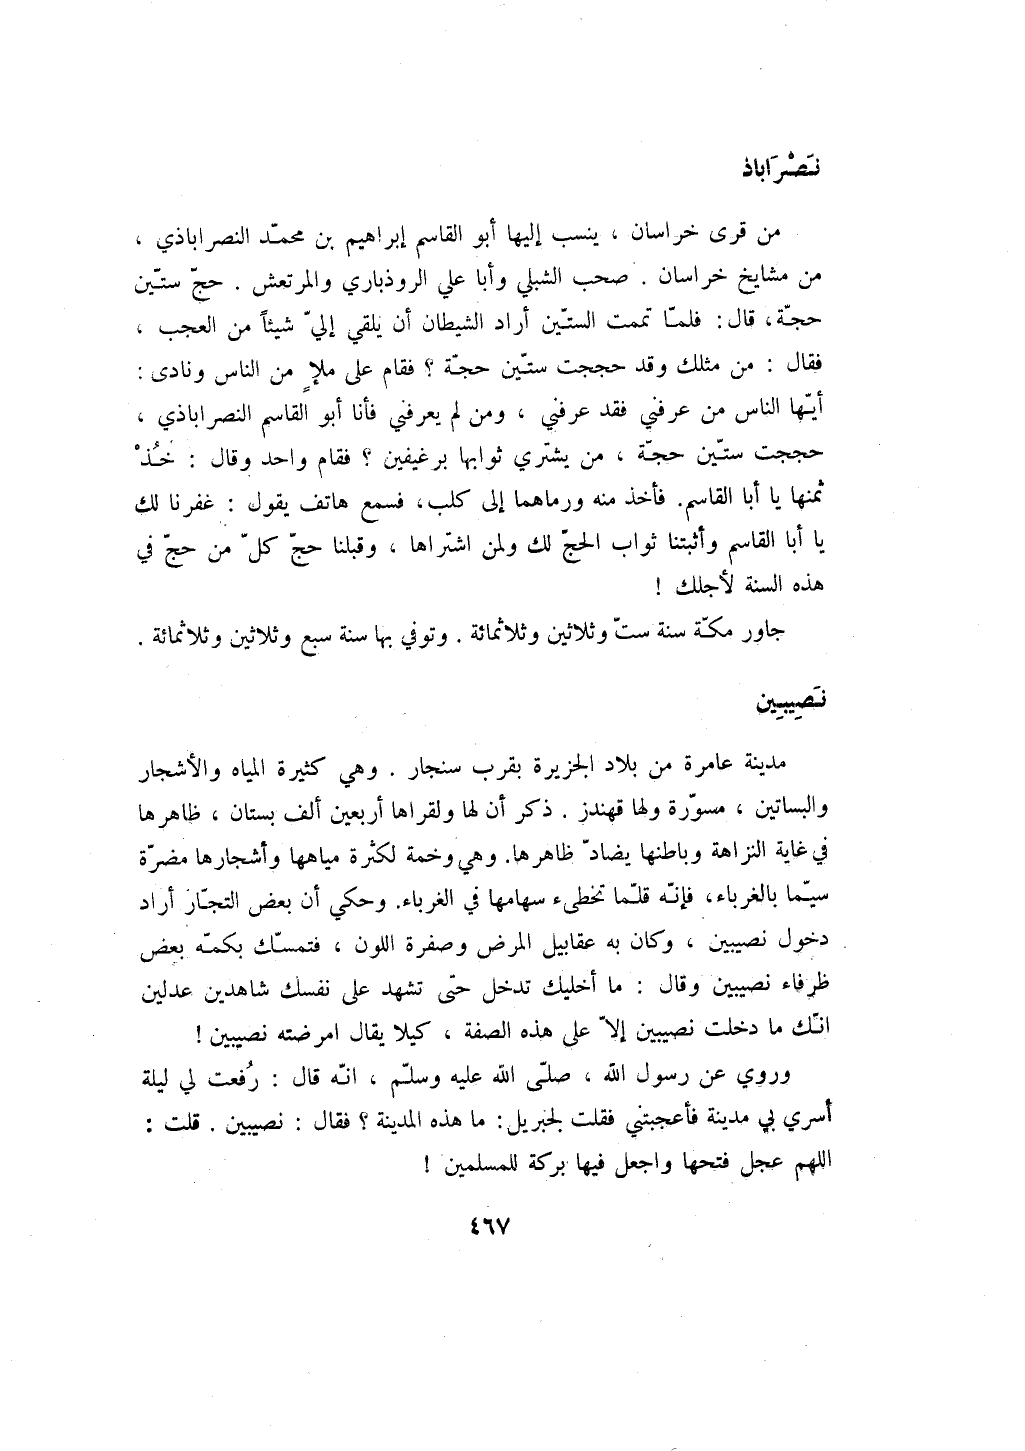 نَصْرَاباذ
من قرى خراسان ، ينسب إليها أبو القاسم إبراهيم بن محمّد النصراباذي ،
من مشايخ خراسان . صحب الشبلي وأبا علي الروذباري والمرتعش . حجّ ستّين
حجّة، قال: فلمّا تممت الستّين أراد الشيطان أن يلقي إليّ شيئاً من العجب ،
فقال : من مثلك وقد حججت ستّين حجّة ؟ فقام على ملإٍ من الناس ونادى :
أيّها الناس من عرفني فقد عرفني ، ومن لم يعرفني فأنا أبو القاسم النصراباذي ،
حججت ستّين حجّة ، من يشتري ثوابها برغيفين ؟ فقام واحد وقال : خُذْ
ثمنها يا أبا القاسم. فأخذ منه ورماهما إلى كلب، فسمع هاتف يقول : غفرنا لك
يا أبا القاسم وأثبتنا ثواب الحجّ لك ولمن اشتراها ، وقبلنا حجّ كلّ من حجّ في
هذه السنة لأجلك !
جاور مكّة سنة ستّ وثلاثين وثلاثمائة . وتوفي بها سنة سبع وثلاثين وثلاثمائة .
نَصِيبِين
مدينة عامرة من بلاد الجزيرة بقرب سنجار . وهي كثيرة المياه والأشجار
والبساتين ، مسوّرة ولها قهندز . ذكر أن لها ولقراها أربعين ألف بستان ، ظاهرها
في غاية النزاهة وباطنها يضادّ ظاهرها. وهي وخمة لكثرة مياهها وأشجارها مضرّة
سيّما بالغرباء، فإنّه قلّما تخطىء سهامها في الغرباء. وحكي أن بعض التجّار أراد
دخول نصيبين ، وكان به عقابيل المرض وصفرة اللون ، فتمسّك بكمّه بعض
ظرفاء نصيبين وقال : ما أخليك تدخل حتّى تشهد على نفسك شاهدين عدلين
انّك ما دخلت نصيبين إلاّ على هذه الصفة ، كيلا يقال امرضته نصيبين !
وروي عن رسول الله ، صلّى الله عليه وسلّم ، انّه قال : رُفعت لي ليلة
أسري بي مدينة فأعجبتني فقلت لجبريل: ما هذه المدينة ؟ فقال : نصيبين . قلت :
اللهم عجل فتحها واجعل فيها بركة للمسلمين !
٤٦٧